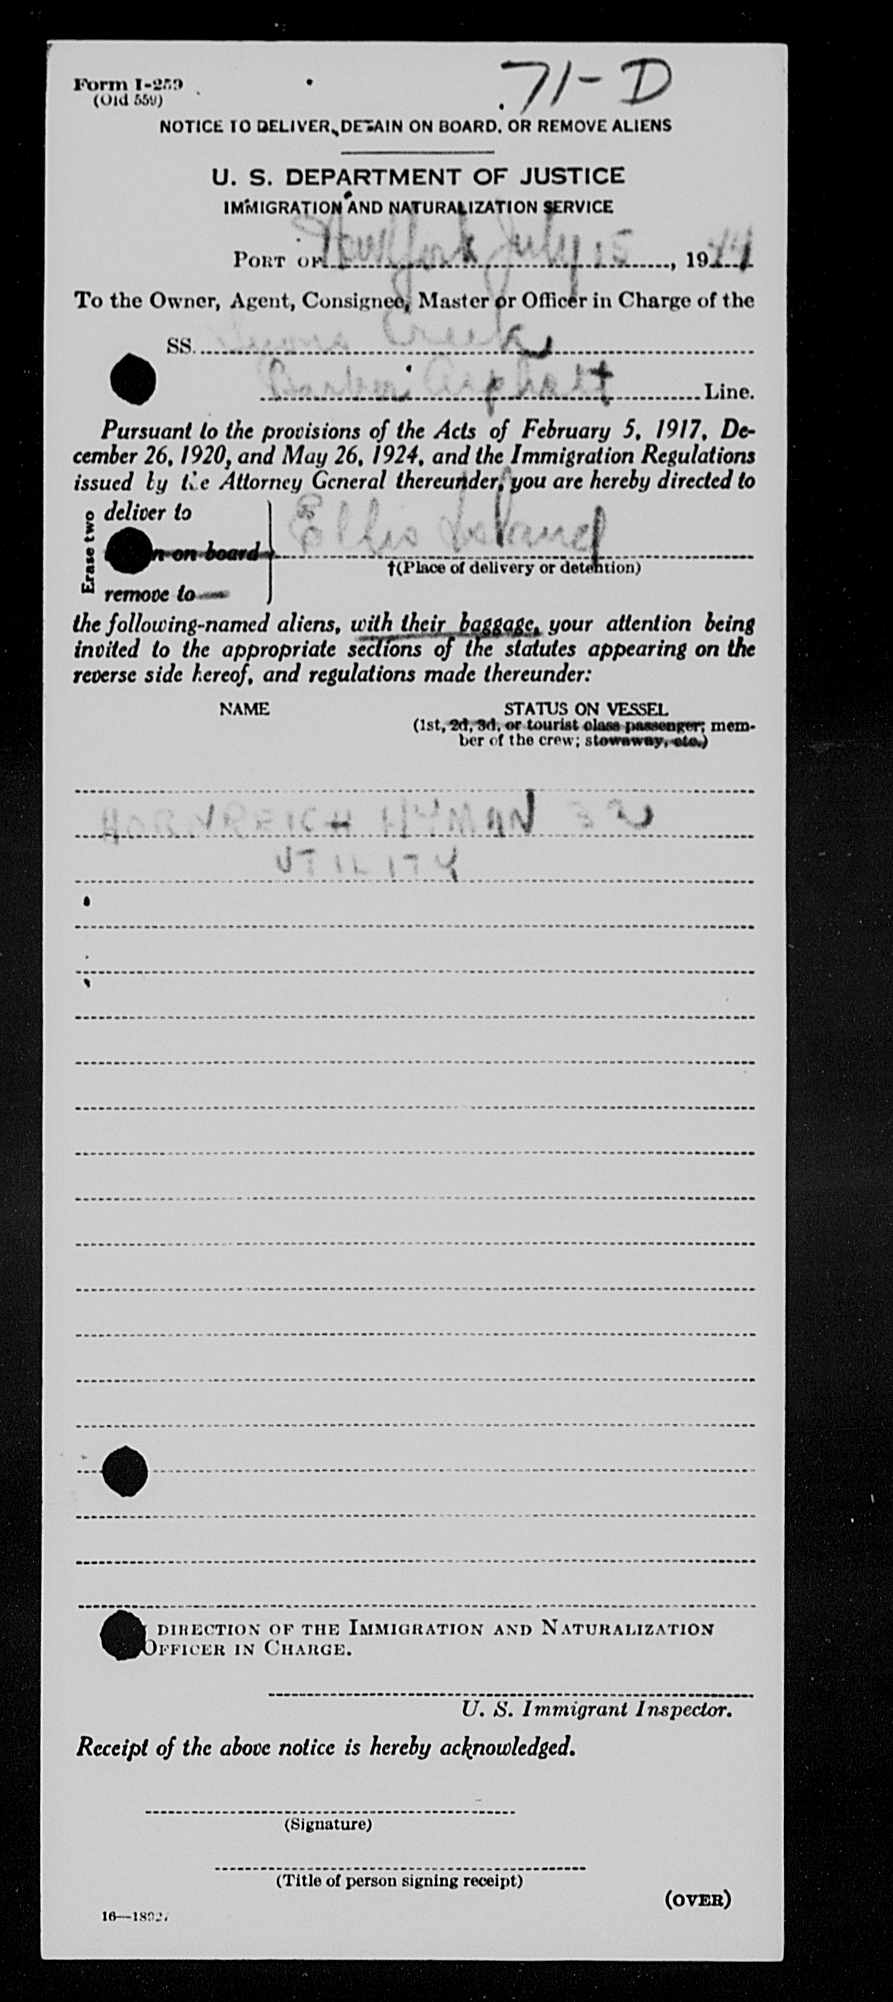 71-D
Form I-259
(Old 559)
NOTICE TO DELIVER, DETAIN ON BOARD, OR REMOVE ALIENS
U. S. DEPARTMENT OF JUSTICE
IMMIGRATION AND NATURALIZATION SERVICE
PORT OF New York July 15, 1944
To the Owner, Agent, Consignee, Master or Officer in Charge of the
SS. Creek
Barber Asphalt Line.
Pursuant to the provisions of the Acts of February 5, 1917, De-
cember 26, 1920, and May 26, 1924, and the Immigration Regulations
issued by the Attorney General thereunder, you are hereby directed to
Erase two
deliver to
on board
Ellis Island
†(Place of delivery or detention)
remove to
the following-named aliens, with their baggage, your attention being
invited to the appropriate sections of the statutes appearing on the
reverse side hereof, and regulations made thereunder:
NAME STATUS ON VESSEL
(1st, 2d, 3d, or tourist class passenger; mem-
ber of the crew; stowaway, etc.)
HORNREICH HYMAN
UTILITY
DIRECTION OF THE IMMIGRATION AND NATURALIZATION
OFFICER IN CHARGE.
U. S. Immigrant Inspector.
Receipt of the above notice is hereby acknowledged.
(Signature)
(Title of person signing receipt)
(OVER)